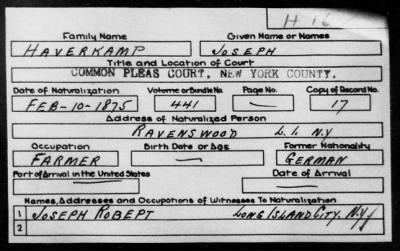 H 16
Family Name Given Name or Names
HAVERKAMP JOSEPH
Title and Location of Court
COMMON PLEAS COURT, NEW YORK COUNTY.
Date of Naturalization Volume or Bundle No. Page No. Copy of Record No.
FEB-10-1875 441 — 17
Address of Naturalized Person
RAVENSWOOD L. I. N.Y
Occupation Birth Date or Age Former Nationality
FARMER — GERMAN
Port of Arrival in the United States Date of Arrival
— —
Names, Addresses and Occupations of Witnesses To Naturalization
1 JOSEPH ROBEPT LONG ISLAND CITY, N.Y
2